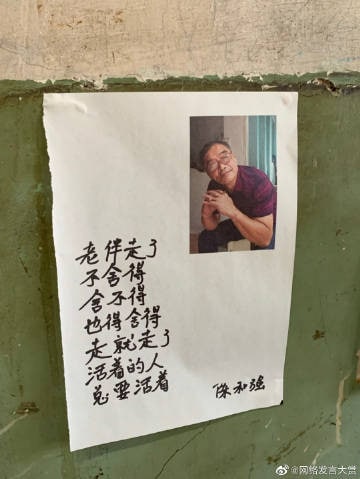 老伴走了
不舍得
舍不得
也得舍得
走就走了
活着的人
总要活着
陈和强
@网络发言大赏